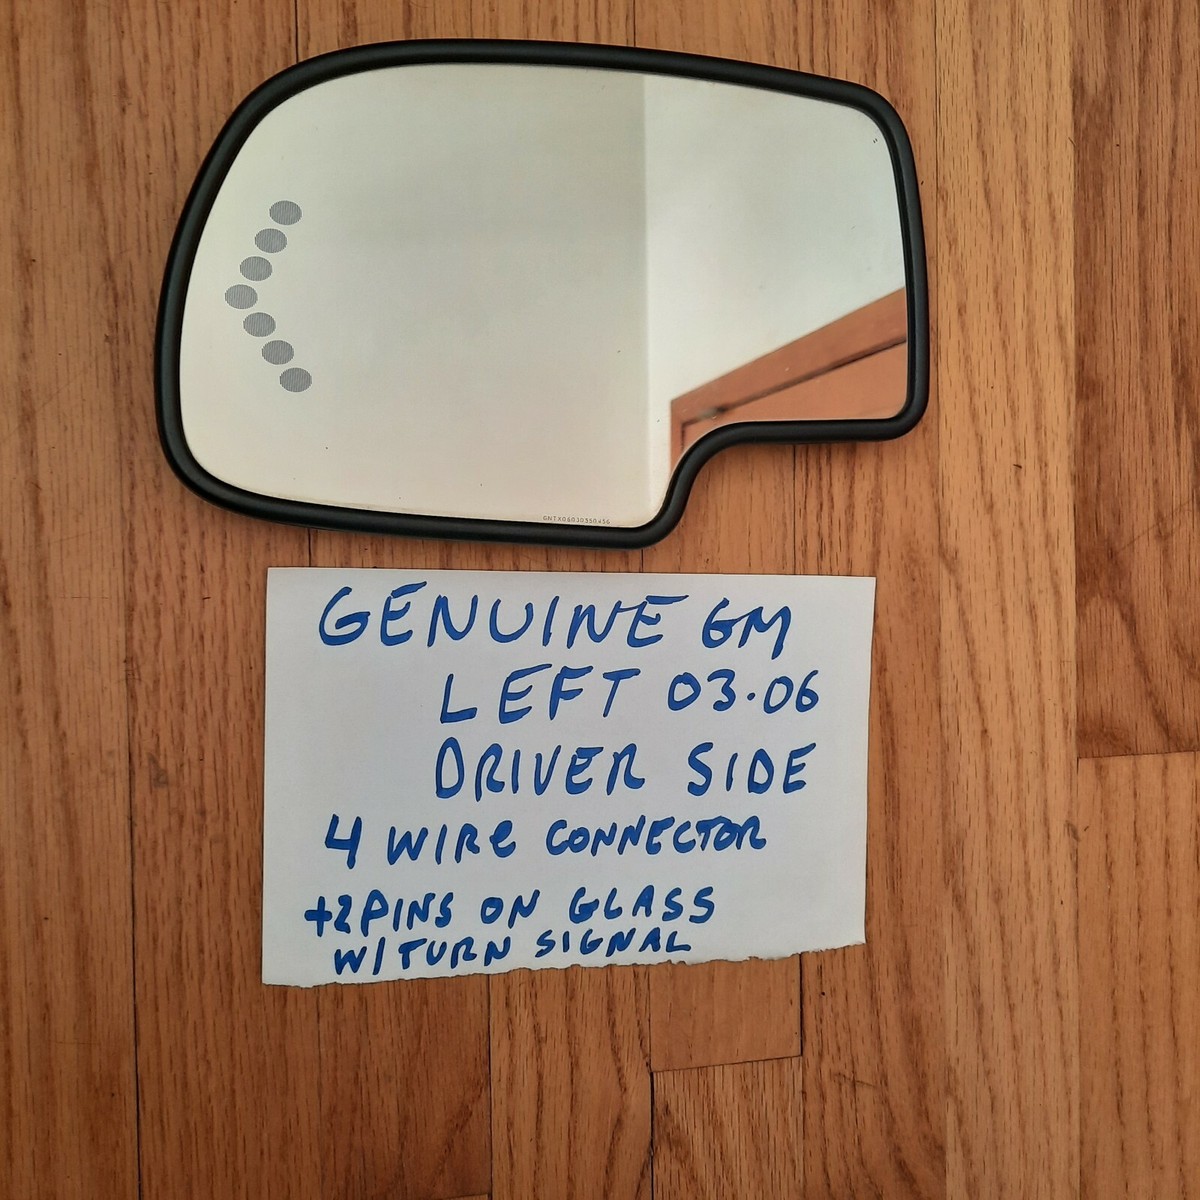 GNTX06030550456
GENUINE GM
LEFT 03-06
DRIVER SIDE
4 WIRE CONNECTOR
+2 PINS ON GLASS
W/TURN SIGNAL